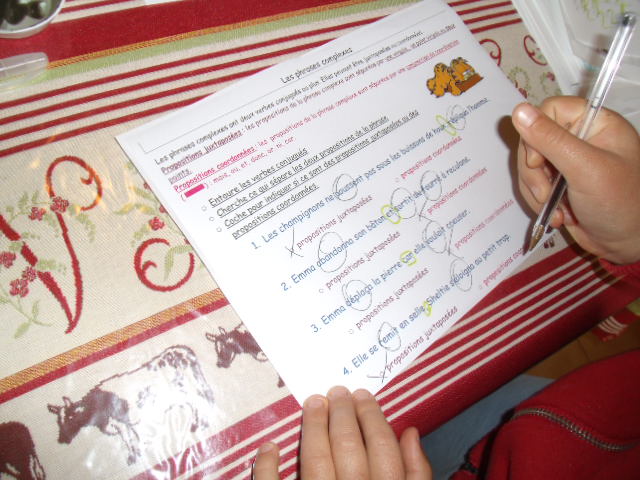 Les phrases complexes
Les phrases complexes ont deux verbes conjugués ou plus. Elles peuvent être juxtaposées ou coordonnées.
Propositions juxtaposées : les propositions de la phrase complexe sont séparées par une virgule, un point virgule ou deux
points.
Propositions coordonnées : les propositions de la phrase complexe sont séparées par une conjonction de coordination
, mais, ou, et, donc, or, ni, car
Entoure les verbes conjugués
Cherche ce qui sépare les deux propositions de la phrase
Coche pour indiquer si ce sont des propositions juxtaposées ou des
propositions coordonnées.
1. Les champignons ne poussent pas sous les buissons de houx l'homme.
X propositions juxtaposées
propositions coordonnées
2. Emma abandonna son bâton et sortit du à reculons.
propositions juxtaposées
propositions coordonnées
3. Emma déplaça la pierre car elle voulait creuser.
propositions juxtaposées
propositions coordonnées
4. Elle se remit en selle, Sheltie s'éloigna au petit trop.
X propositions juxtaposées
propositions